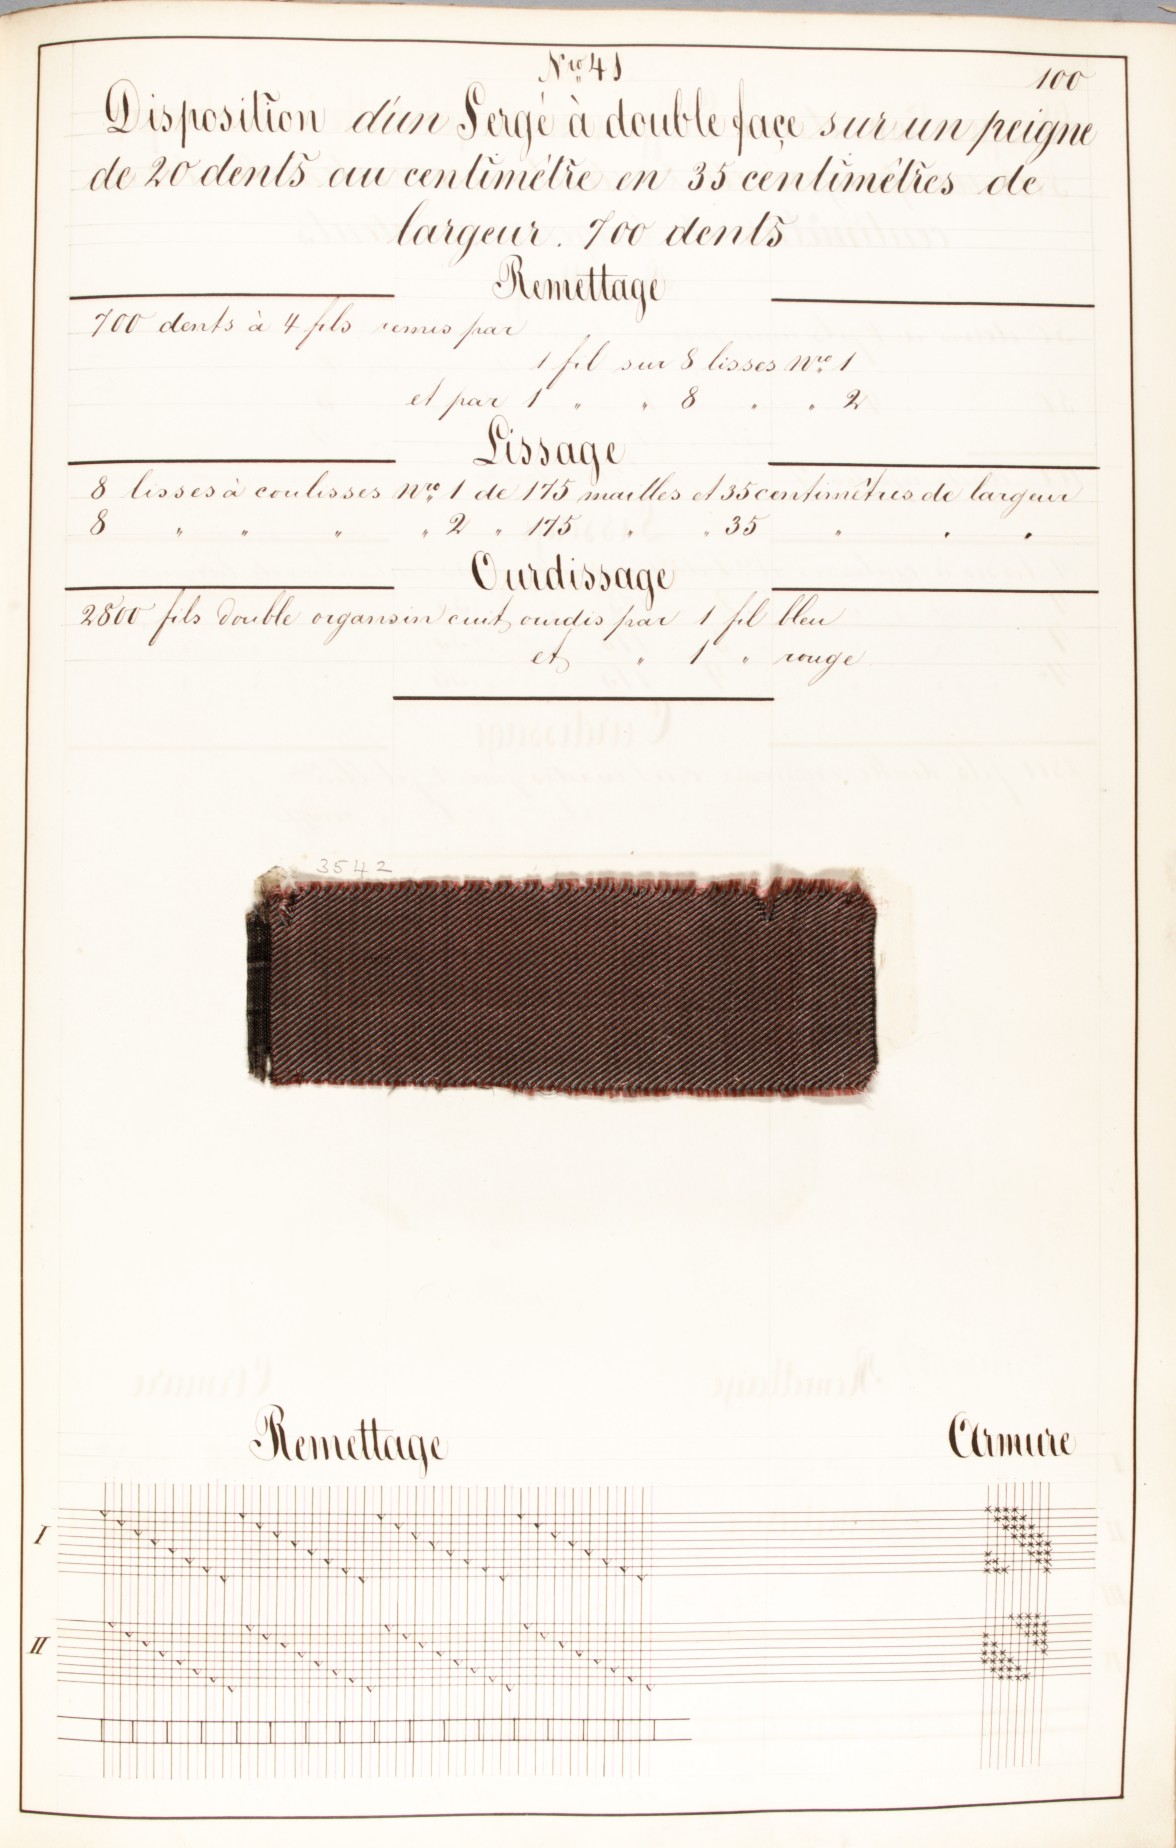 Nro 41
100
Disposition d'un Sergé à double façe sur un peigne
de 20 dents au centimétre en 35 centimétres de
largeur. 700 dents
Remettage
700 dents à 4 fils remis par
1 fil sur 8 lisses Nro 1
et par 1 " " 8 " " 2
Lissage
8 lisses à coulisses Nro 1 de 175 mailles et 35 centimétres de largeur
8 " " " " 2 " 175 " " 35 " " "
Ourdissage
2800 fils double organsin cuit, ourdis par 1 fil bleu
et " 1 " rouge
3542
Remettage
Armure
I
II